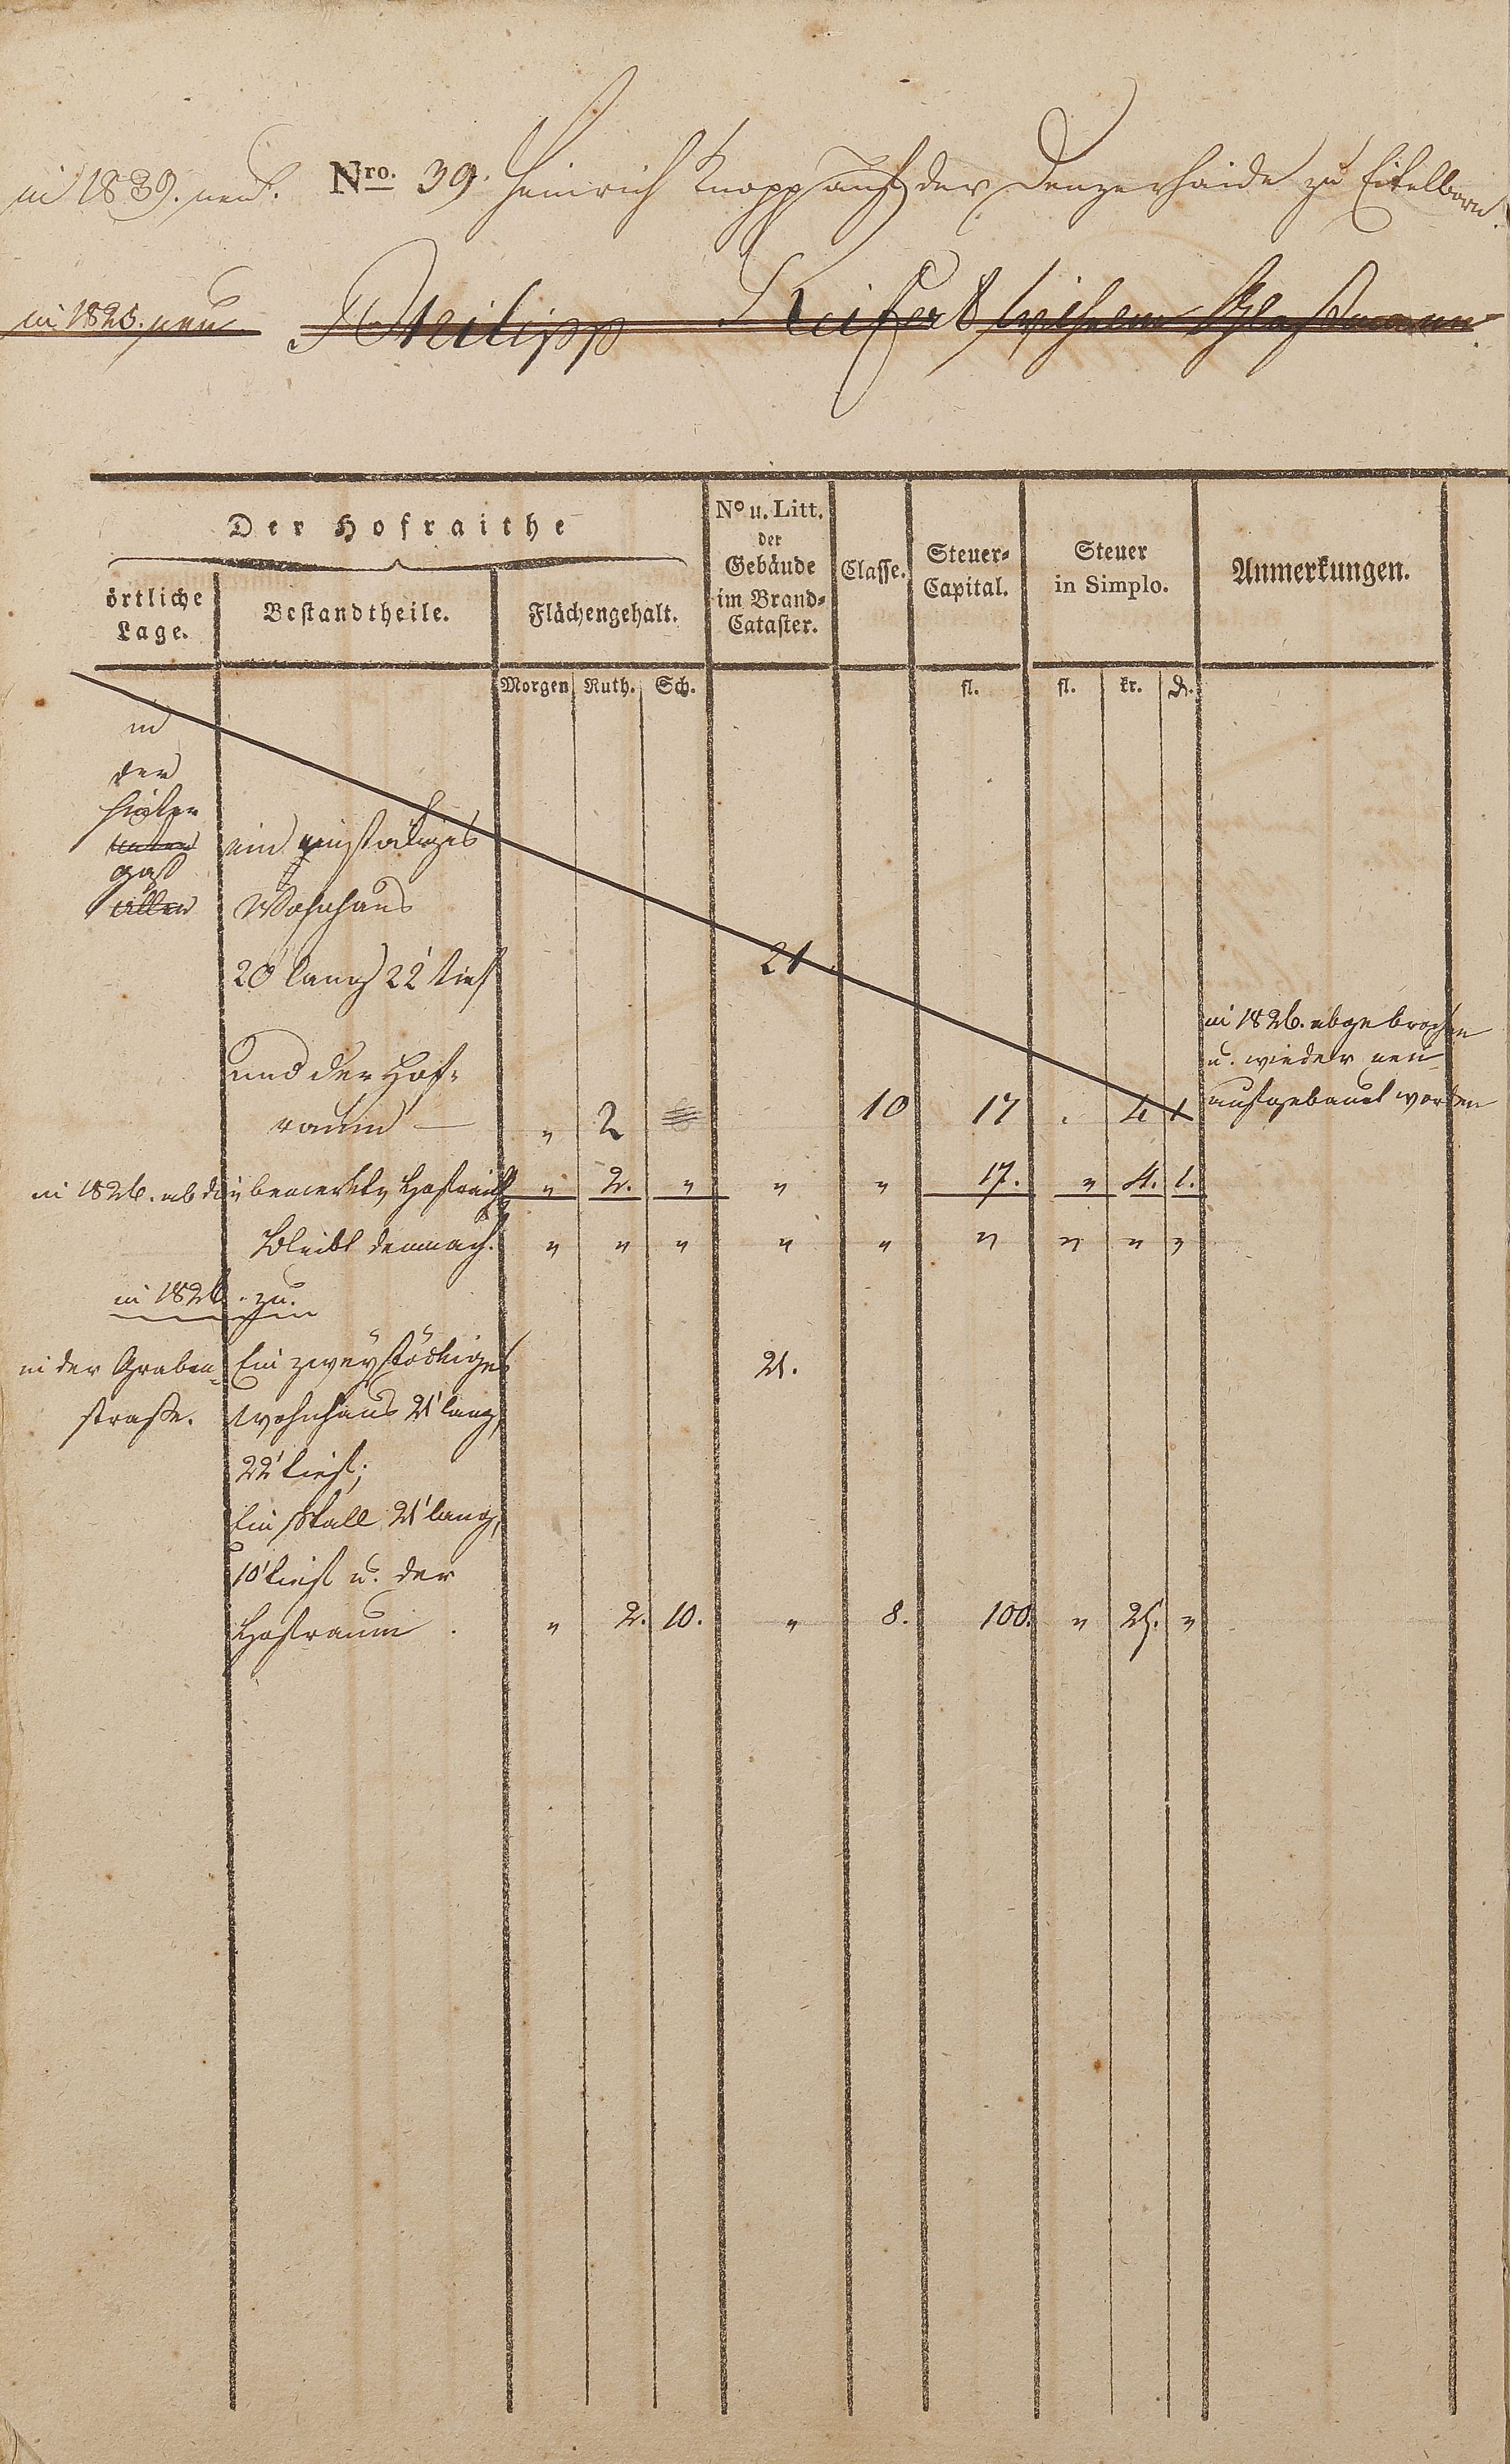 in 1839. neu. Nro. 39. Heinrich Knopp auf der Denzerhaide zu Eitelborn.
in 1825. neu. Philipp Seifert Wilhelm
Der Hofraithe
örtliche Lage.
Bestandtheile.
Flächengehalt.
No u. Litt. der Gebäude im Brand-Cataster.
Classe.
Steuer-Capital.
Steuer in Simplo.
Anmerkungen.
Morgen Ruth. Sch. fl. fl. kr. d.
in
der
hinter
unter
gaß
ein einstöckiges
Wohnhaus
20' lang 22' tief
21
und der Hof-
raum — " 2 10 17 . 4 1
in 1826. abgebrochen
u. wieder neu
aufgebauet worden
in 1826. ab die bemerkte Hofraith " 2. " " " 17. " 4. 1.
Bleibt demnach. " " " " " " " " "
in 1826. zu.
in der Graben- Ein zweystöckiges 21.
straße. Wohnhaus 21' lang,
22' tief;
Ein Stall 21' lang,
10' tief u. der
Hofraum . " 2. 10. " 8. 100. " 25. "